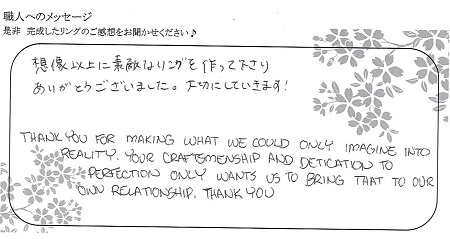 職人へのメッセージ
是非 完成したリングのご感想をお聞かせください♪
想像以上に素敵なリングを作って下さり
ありがとうございました。大切にしていきます!
THANK YOU FOR MAKING WHAT WE COULD ONLY IMAGINE INTO
REALITY. YOUR CRAFTSMENSHIP AND DETICATION TO
PERFECTION ONLY WANTS US TO BRING THAT TO OUR
OWN RELATIONSHIP. THANK YOU